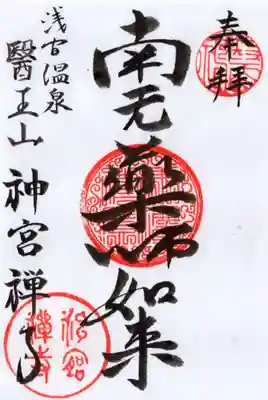 奉拝
南无薬師如来
浅間温泉
醫王山 神宮禅寺
神宮
禅寺